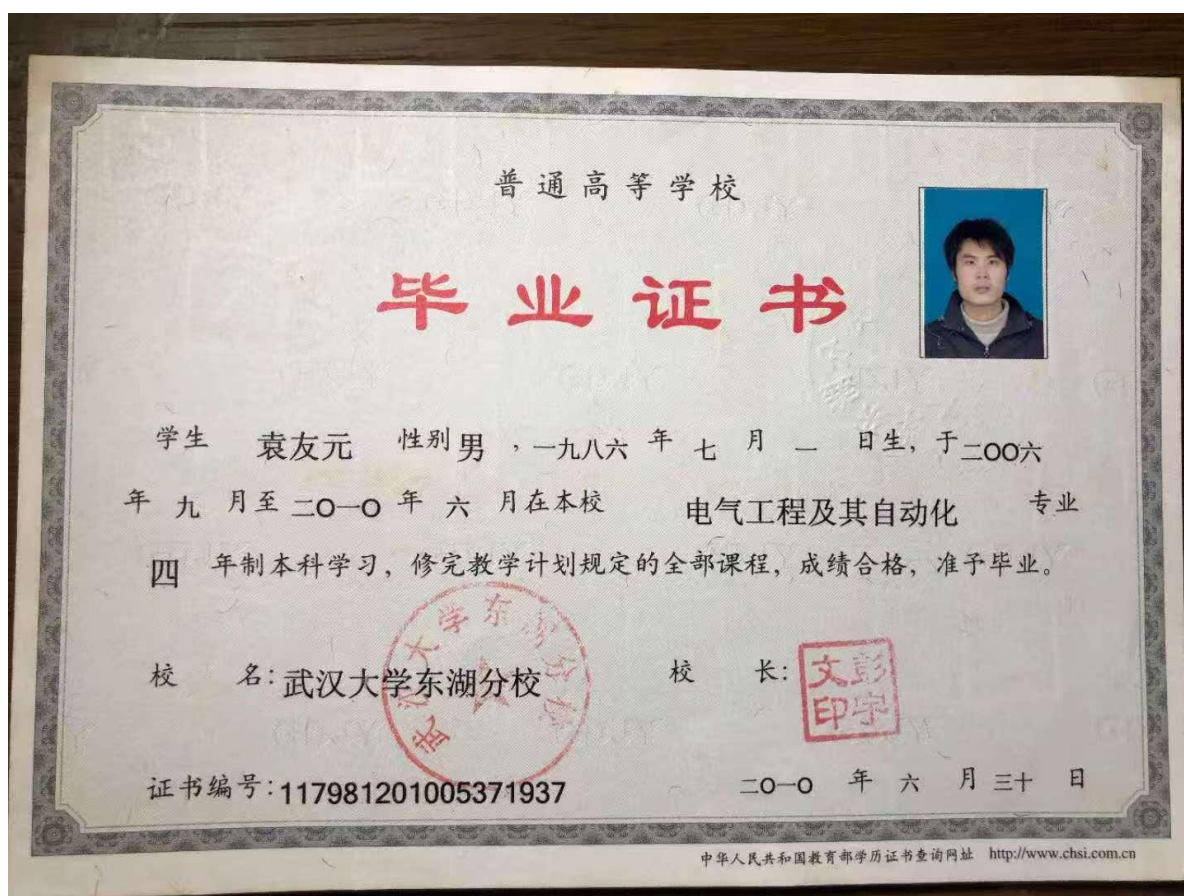 普通高等学校
毕业证书
学生 袁友元 性别 男 ，一九八六 年 七 月 一 日生，于 二OO六
年 九 月至 二O一O 年 六 月在本校 电气工程及其自动化 专业
四 年制本科学习，修完教学计划规定的全部课程，成绩合格，准予毕业。
武汉大学东湖分校
校 名：武汉大学东湖分校 校 长：
彭宇文印
证书编号：117981201005371937 二O一O 年 六 月 三十 日
中华人民共和国教育部学历证书查询网址 http://www.chsi.com.cn